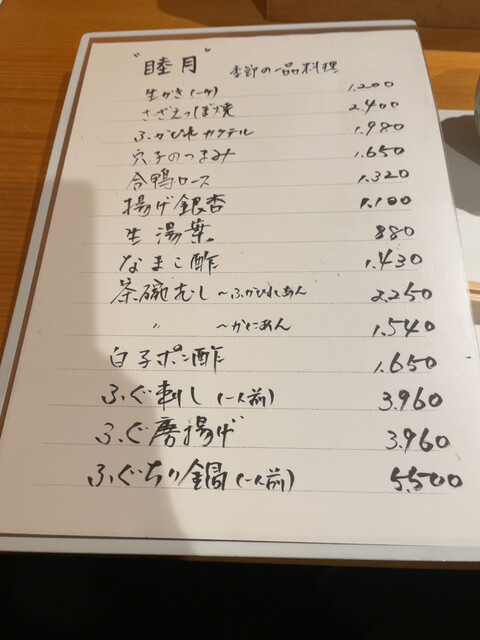 "睦月" 季節の一品料理
生がき(一ヶ) 1.200
さざえつぼ焼 2.400
ふかひれカクテル 1.980
穴子のつまみ 1.650
合鴨ロース 1.320
揚げ銀杏 1.100
生湯葉 880
なまこ酢 1.430
茶碗むし〜ふかひれあん 2.250
〃 〜かにあん 1.540
白子ポン酢 1.650
ふぐ刺し(一人前) 3.960
ふぐ唐揚げ 3.960
ふぐちり鍋(一人前) 5.500